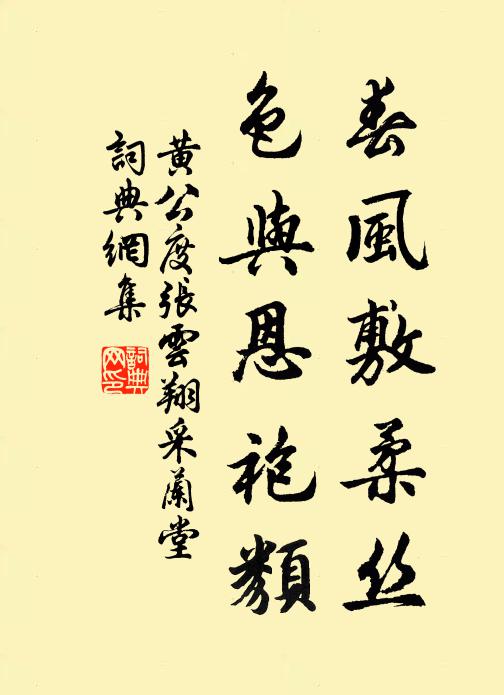 春風敷柔丝
色與恩袍類
黄公度張雲翔采蘭堂
詞典網集
詞典
网印